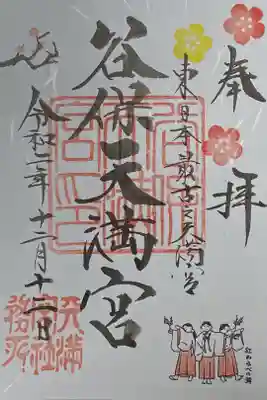 奉拝
東日本最古之天満宮
谷保天満宮
令和二年十二月十二日
天満
宮社
務所